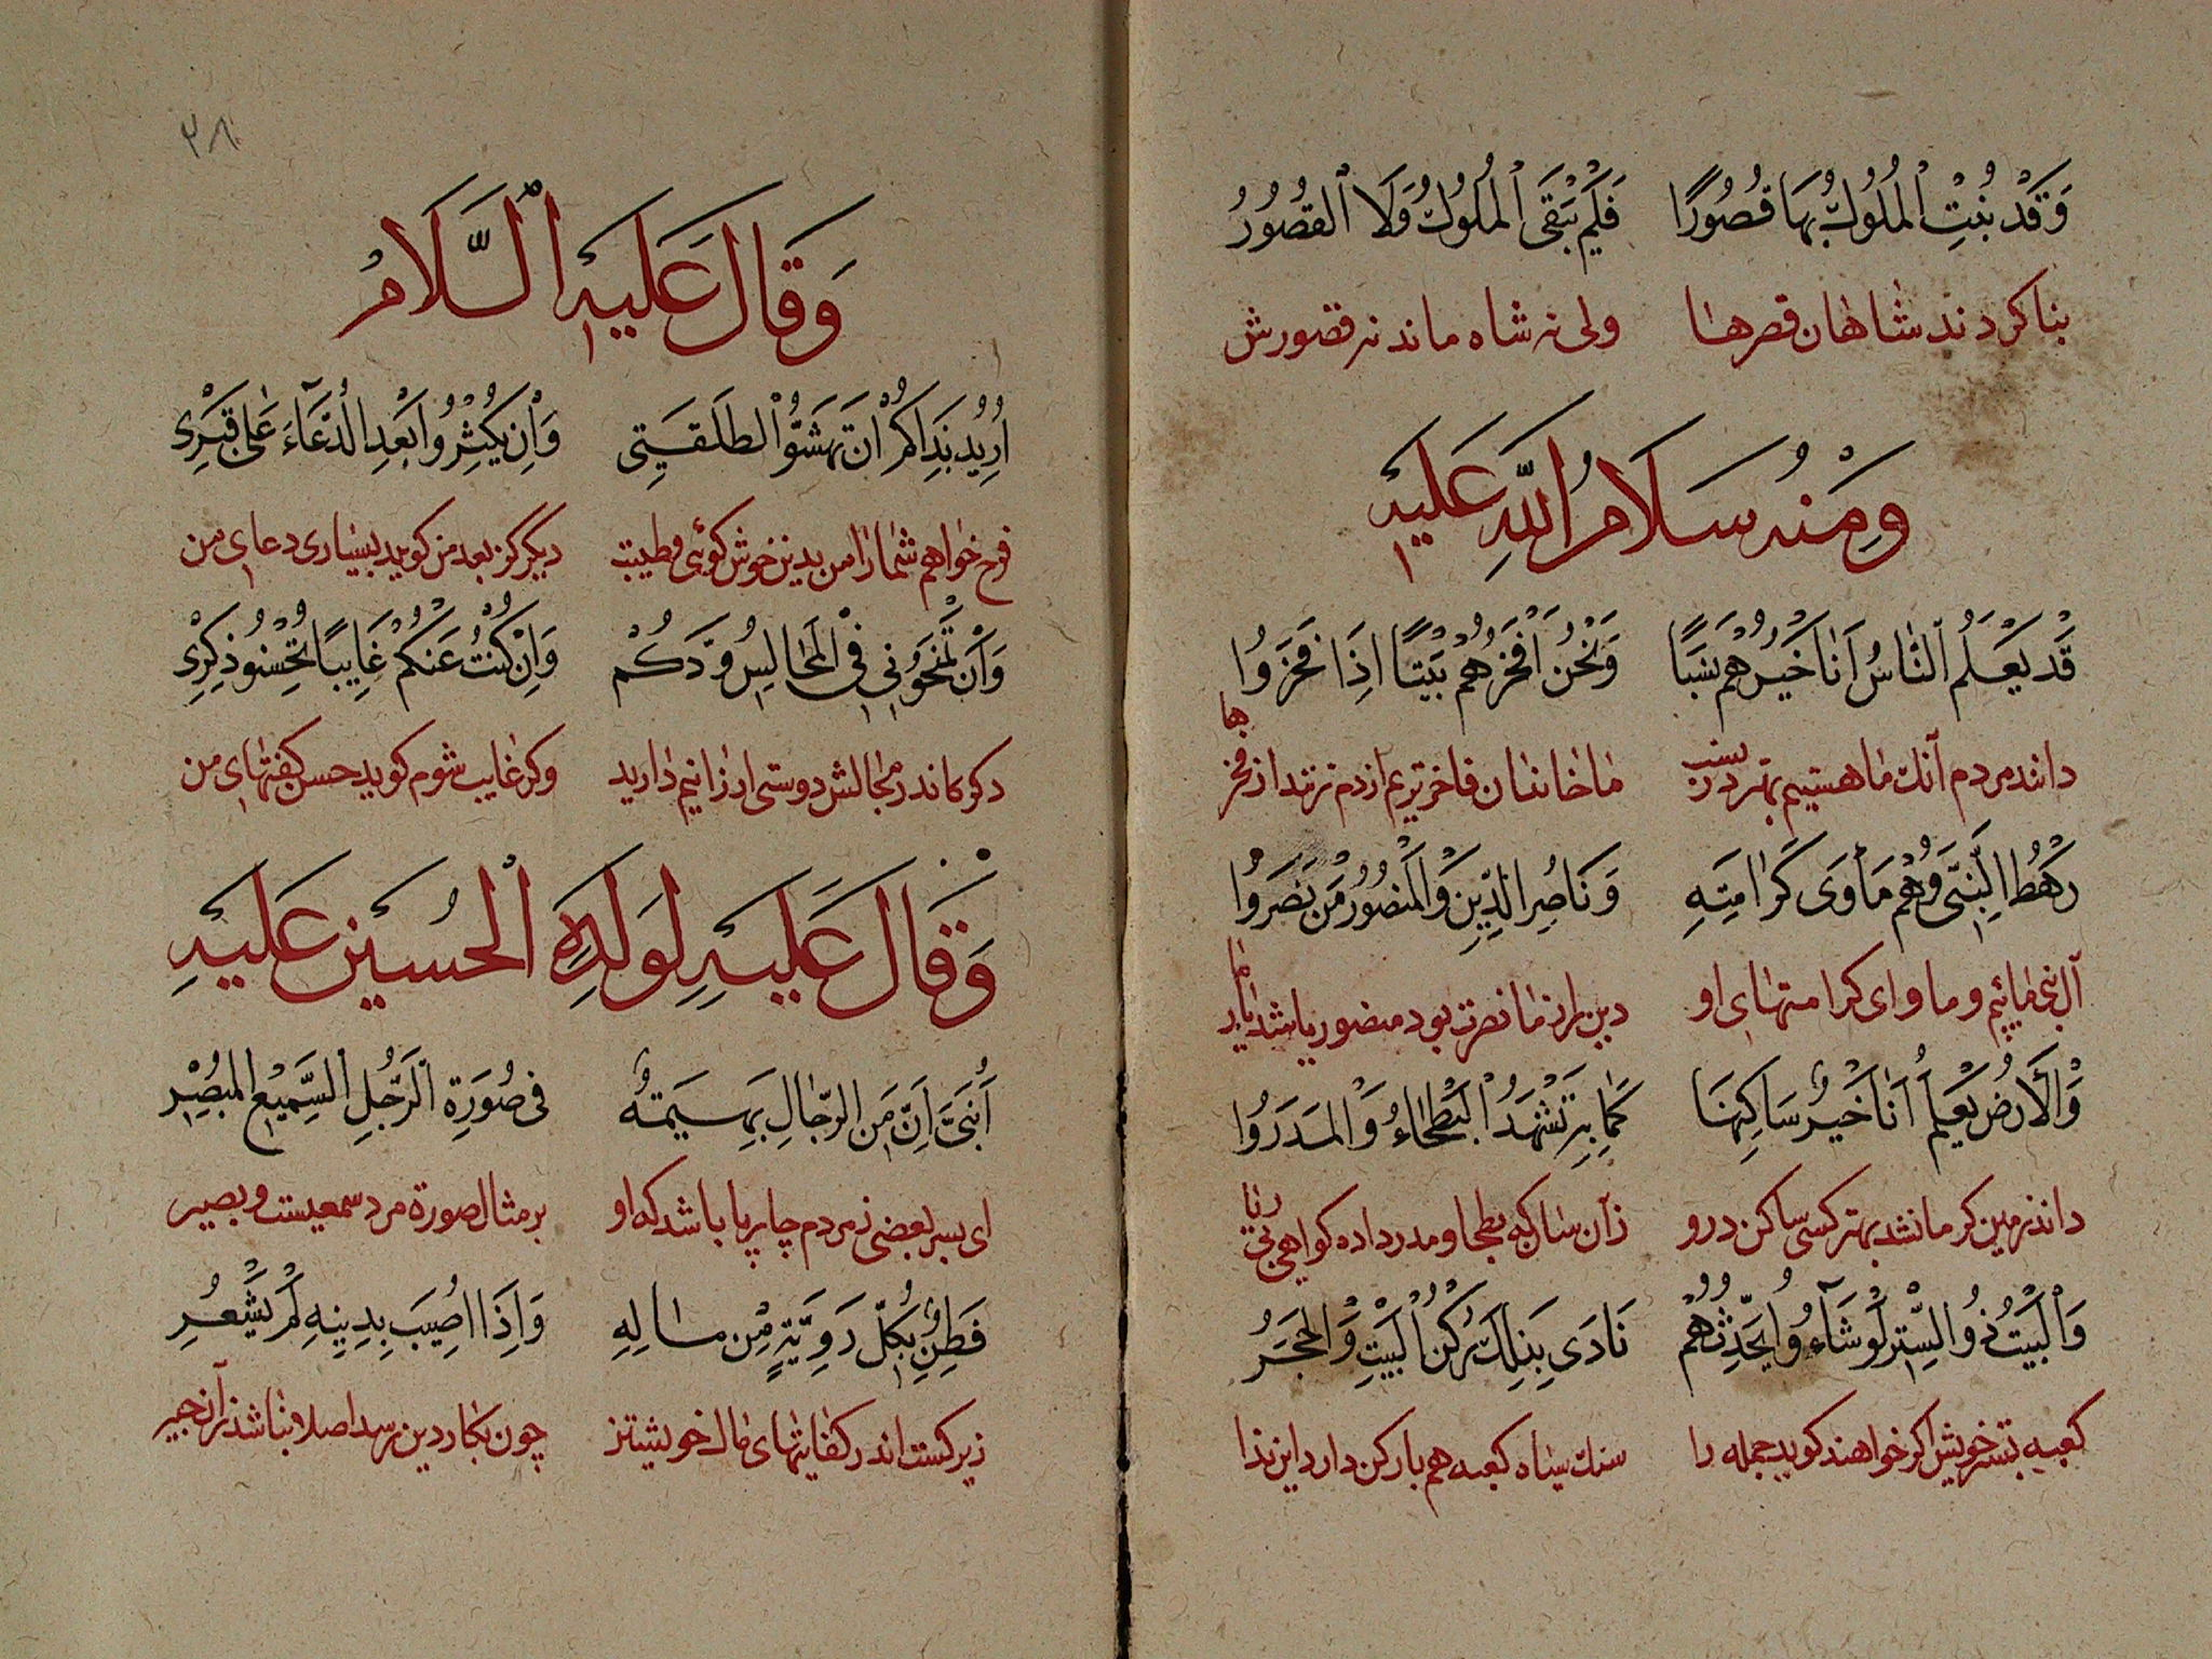 وَقَدْ بُنِتِ الْمُلُوكُ بِهَا قُصُورًا فَلَمْ يَبْقَى الْمُلُوكُ وَلَا الْقُصُورُ
بنا کردند شاهان قصرها ولی نه شاه ماند نه قصورش
وَمِنْهُ سَلَامُ اللهِ عَلَيْهِ
قَدْ يَعْلَمُ النَّاسُ أَنَا خَيْرُهُمْ نَسَبًا وَنَحْنُ أَفْخَرُهُمْ بَيْتًا إِذَا فَخَرُوا
دانند مردم آنك ما هستیم بهتر در نسب ما خاندان فاخر تریم ازدم زنند از فخرها
رَهْطُ النَّبِيِّ وَهُمْ مَأْوَى كَرَامَتِهِ وَنَاصِرِ الدِّينِ وَالْمَنْصُورُ مَنْ نَصَرُوا
آل نبی مائیم و ماوای کرامتهای او دین را ز ما نصرت بود منصور باشد
وَالْأَرْضُ يَعْلَمُ أَنَا خَيْرُ سَاكِنِهَا كَمَا بِهِ تَشْهَدُ الْبَطْحَاءُ وَالْمَدَرُوا
داند زمین کر ما نشد بهتر کسی ساکن درو زآن سان که بطحا و مدر داده کواهی
وَالْبَيْتُ ذُو السِّتْرِ لَوْ شَاءُوا يُحَدِّثُهُمْ نَادَى بِذٰلِكَ رُكْنُ الْبَيْتِ وَالْحَجَرُ
کعبه بتسر خویش اکر خواهند کوید جمله را سنك سیاه کعبه هم بارکن دارد این ندا
٣٨
وَقَالَ عَلَيْهِ السَّلَامُ
أُرِيدُ بِذَاكُمْ أَنْ تَهَشُّوا لطَلْقَتِي وَإِنْ يُكْثِرُوا بَعْدِ الدُّعَاءَ عَلَى قَبْرِي
خواهم شما را من بدین خوش کوئی و طیبت دیگر کز بعد من کوید بسیاری دعای من
وَأَنْ تَمْنَحُونِي فِي الْمَجَالِسِ وُدَّكُمْ وَإِنْ كُنْتُ عَنْكُمْ غَايِبًا تُحْسِنُو ذِكْرِي
دکر کاندر مجالس دوستی ارزانیم دارید وکر غایب شوم کوید حسن کفتهای من
وَقَالَ عَلَيْهِ لِوَلَدِهِ الْحُسَيْنِ عَلَيْهِ
أَبُنَيَّ إِنَّ مِنَ الرِّجَالِ بَهِيمَةً فِي صُورَةِ الرَّجُلِ السَّمِيعِ الْمُبْصِرِ
ای پسر بعضی ز مردم چارپا باشد که او بر مثال صورة مرد سمعیست و بصیر
فَطِنٌ بِكُلِّ رَوِيَّةٍ مِنْ مَالِهِ وَإِذَا أُصِيبَ بِدِينِهِ لَمْ يَشْعُرِ
زیرکست اندر کفایتهای مال خویشتز چون بکار دین رسد اصلا نباشد زآن خبیر